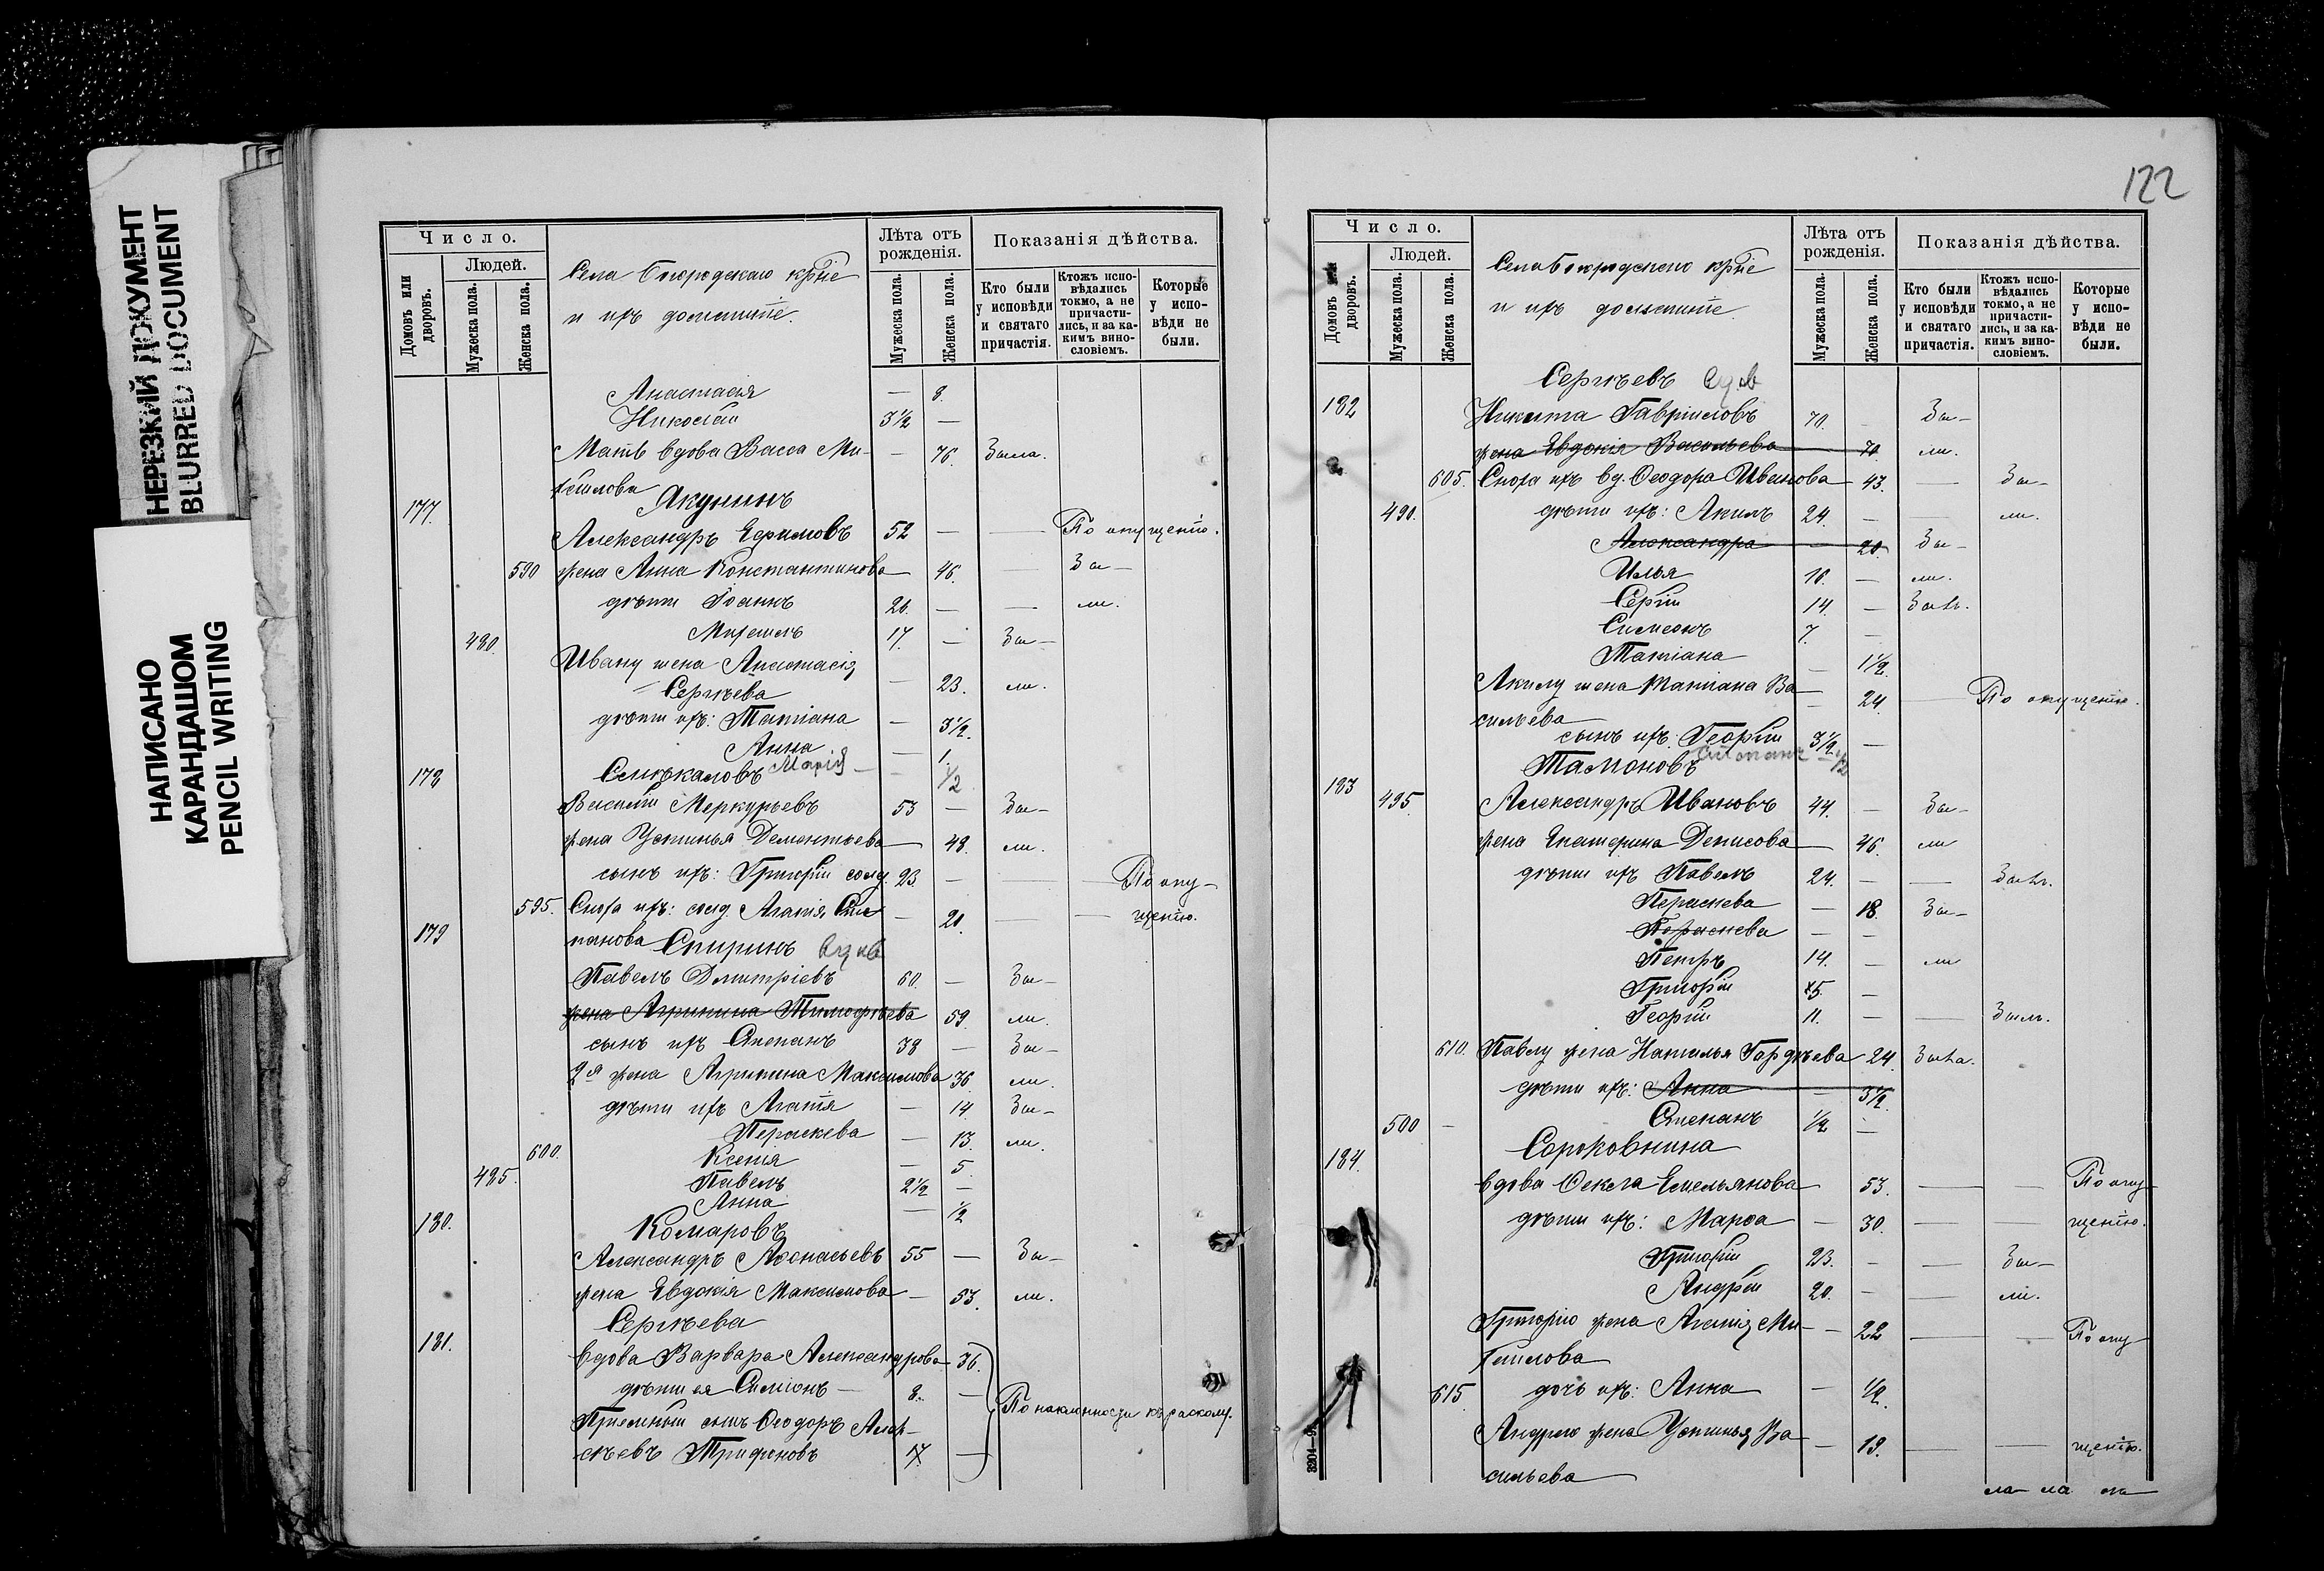 НЕРЕЗКИЙ ДОКУМЕНТ
BLURRED DOCUMENT
НАПИСАНО
КАРАНДАШОМ
PENCIL WRITING
Число.
Людей.
Домовъ или дворовъ.
Мужеска пола.
Женска пола.
Села Богородскаго крſне
и ихъ домашніе.
Лѣта отъ рожденія.
Мужеска пола.
Женска пола.
Показанія дѣйства.
Кто были у исповѣди и святаго причастія.
Ктожъ исповѣдались токмо, а не причастились, и за какимъ винословіемъ.
Которые у исповѣди не были.
Анастасія — 8.
Николай 3½ —
Мать вдова Васса Ми- — 76. Была.
хаилова
177. Якунинъ
Александръ Ефимовъ 52 — — По опущенію.
590 жена Анна Константинова 46. — Бы-
дѣти Іоаннъ 26. — — ли.
480. Михаилъ 17. — Бы-
Ивану жена Анастасія
Сергѣева — 23. ли.
дѣти ихъ: Татіана — 3½.
Анна — 1.
Марія — — ½
178 Сенькаловъ
Василій Меркурьевъ 53 — Бы-
жена Устинья Дементьева — 48. ли.
сынъ ихъ: Григорій солд. 23. — — По опу-
595. Сноха ихъ: солд. Агафія Сте — 20. — щенію.
панова
179 Спиринъ вдов
Павелъ Дмитріевъ 60. — Бы-
жена Агрипина Тимофѣева 59. ли.
сынъ ихъ Степанъ 38 — Бы-
2я жена Агрипина Максимова 36 ли.
дѣти ихъ Агафія — 14 Бы-
Параскева — 13. ли.
600. Ксенія — 5.
485. Павелъ 2½ —
Анна — ½
180. Комаровъ
Александръ Аѳонасьевъ 55 — Бы-
жена Евдокія Максимова — 53. ли.
Сергѣева
181. вдова Варвара Александрова 36.
дѣти ея Симеонъ — 8. —
По наклонности къ расколу.
Пріемный сынъ Ѳеодоръ Алек-
сѣевъ Трифоновъ 17. —
122
Число.
Людей.
Домовъ или дворовъ.
Мужеска пола.
Женска пола.
Села Богородскаго крſне
и ихъ домашніе.
Лѣта отъ рожденія.
Мужеска пола.
Женска пола.
Показанія дѣйства.
Кто были у исповѣди и святаго причастія.
Ктожъ исповѣдались токмо, а не причастились, и за какимъ винословіемъ.
Которые у исповѣди не были.
Сергѣевъ вдов
182 Никита Гавріиловъ 70. — Бы-
жена Евдокія Васильева 70. ли.
605. Сноха ихъ вд. Ѳеодора Иванова 43. — Бы-
490. дѣти ихъ: Акимъ 24. — — ли.
Александра — 20 Бы-
Илья 16. — ли.
Сергій 14. — Былъ.
Симеонъ 7. —
Татіана — 1½.
Акиму жена Татіана Ва — 24. — По опущенію.
сильева
сынъ ихъ: Георгій 3½ —
Степанъ ½
183 Тамоновъ
495. Александръ Ивановъ 44. — Бы-
жена Екатерина Денисова — 46. ли
дѣти ихъ Павелъ 24. — — Былъ.
Параскева — 18. Бы-
Параскева — —
Петръ 14. — ли
Григорій 15. —
Георгій 11. — — Былъ.
610. Павлу жена Наталья Гордѣева 24. Была.
дѣти ихъ: Анна — 3½.
500 Степанъ ½ —
184. Сороковнина
вдова Ѳекла Емельянова 53. — — По опу-
дѣти ихъ: Марѳа — 30. — щенію.
Григорій 23. — — Бы-
Андрей 20. — — ли.
Григорію жена Агафія Ми- — 22 — — По опу-
хаилова
615. дочь ихъ: Анна — ½.
Андрею жена Устинья Ва — 19. — — щенію.
сильева
3204—9